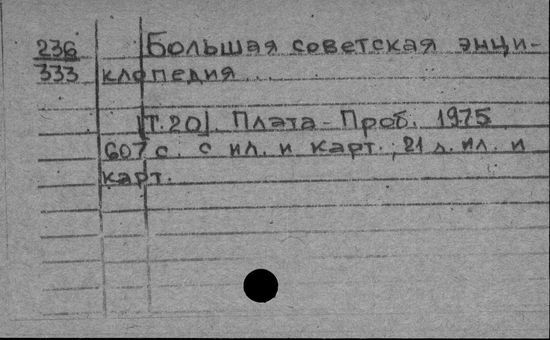 236 Большая советская энци-
333 клопедия...
[Т.20]. Плата - Проб. 1975
607 с. с ил. и карт., 21 л. ил. и
карт.